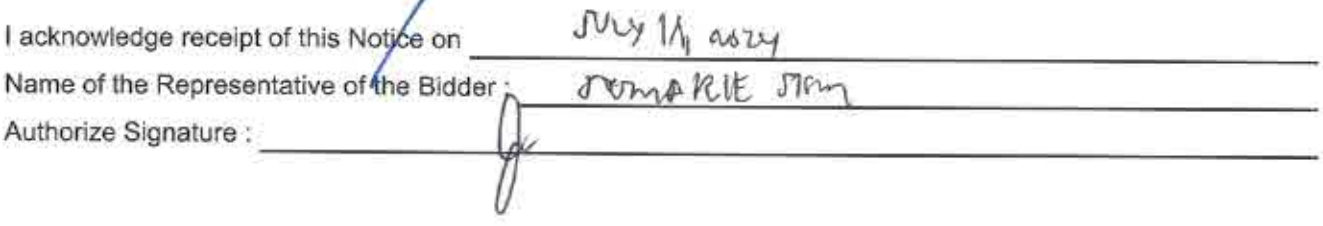 I acknowledge receipt of this Notice on July 11, 2024
Name of the Representative of the Bidder :
Authorize Signature :